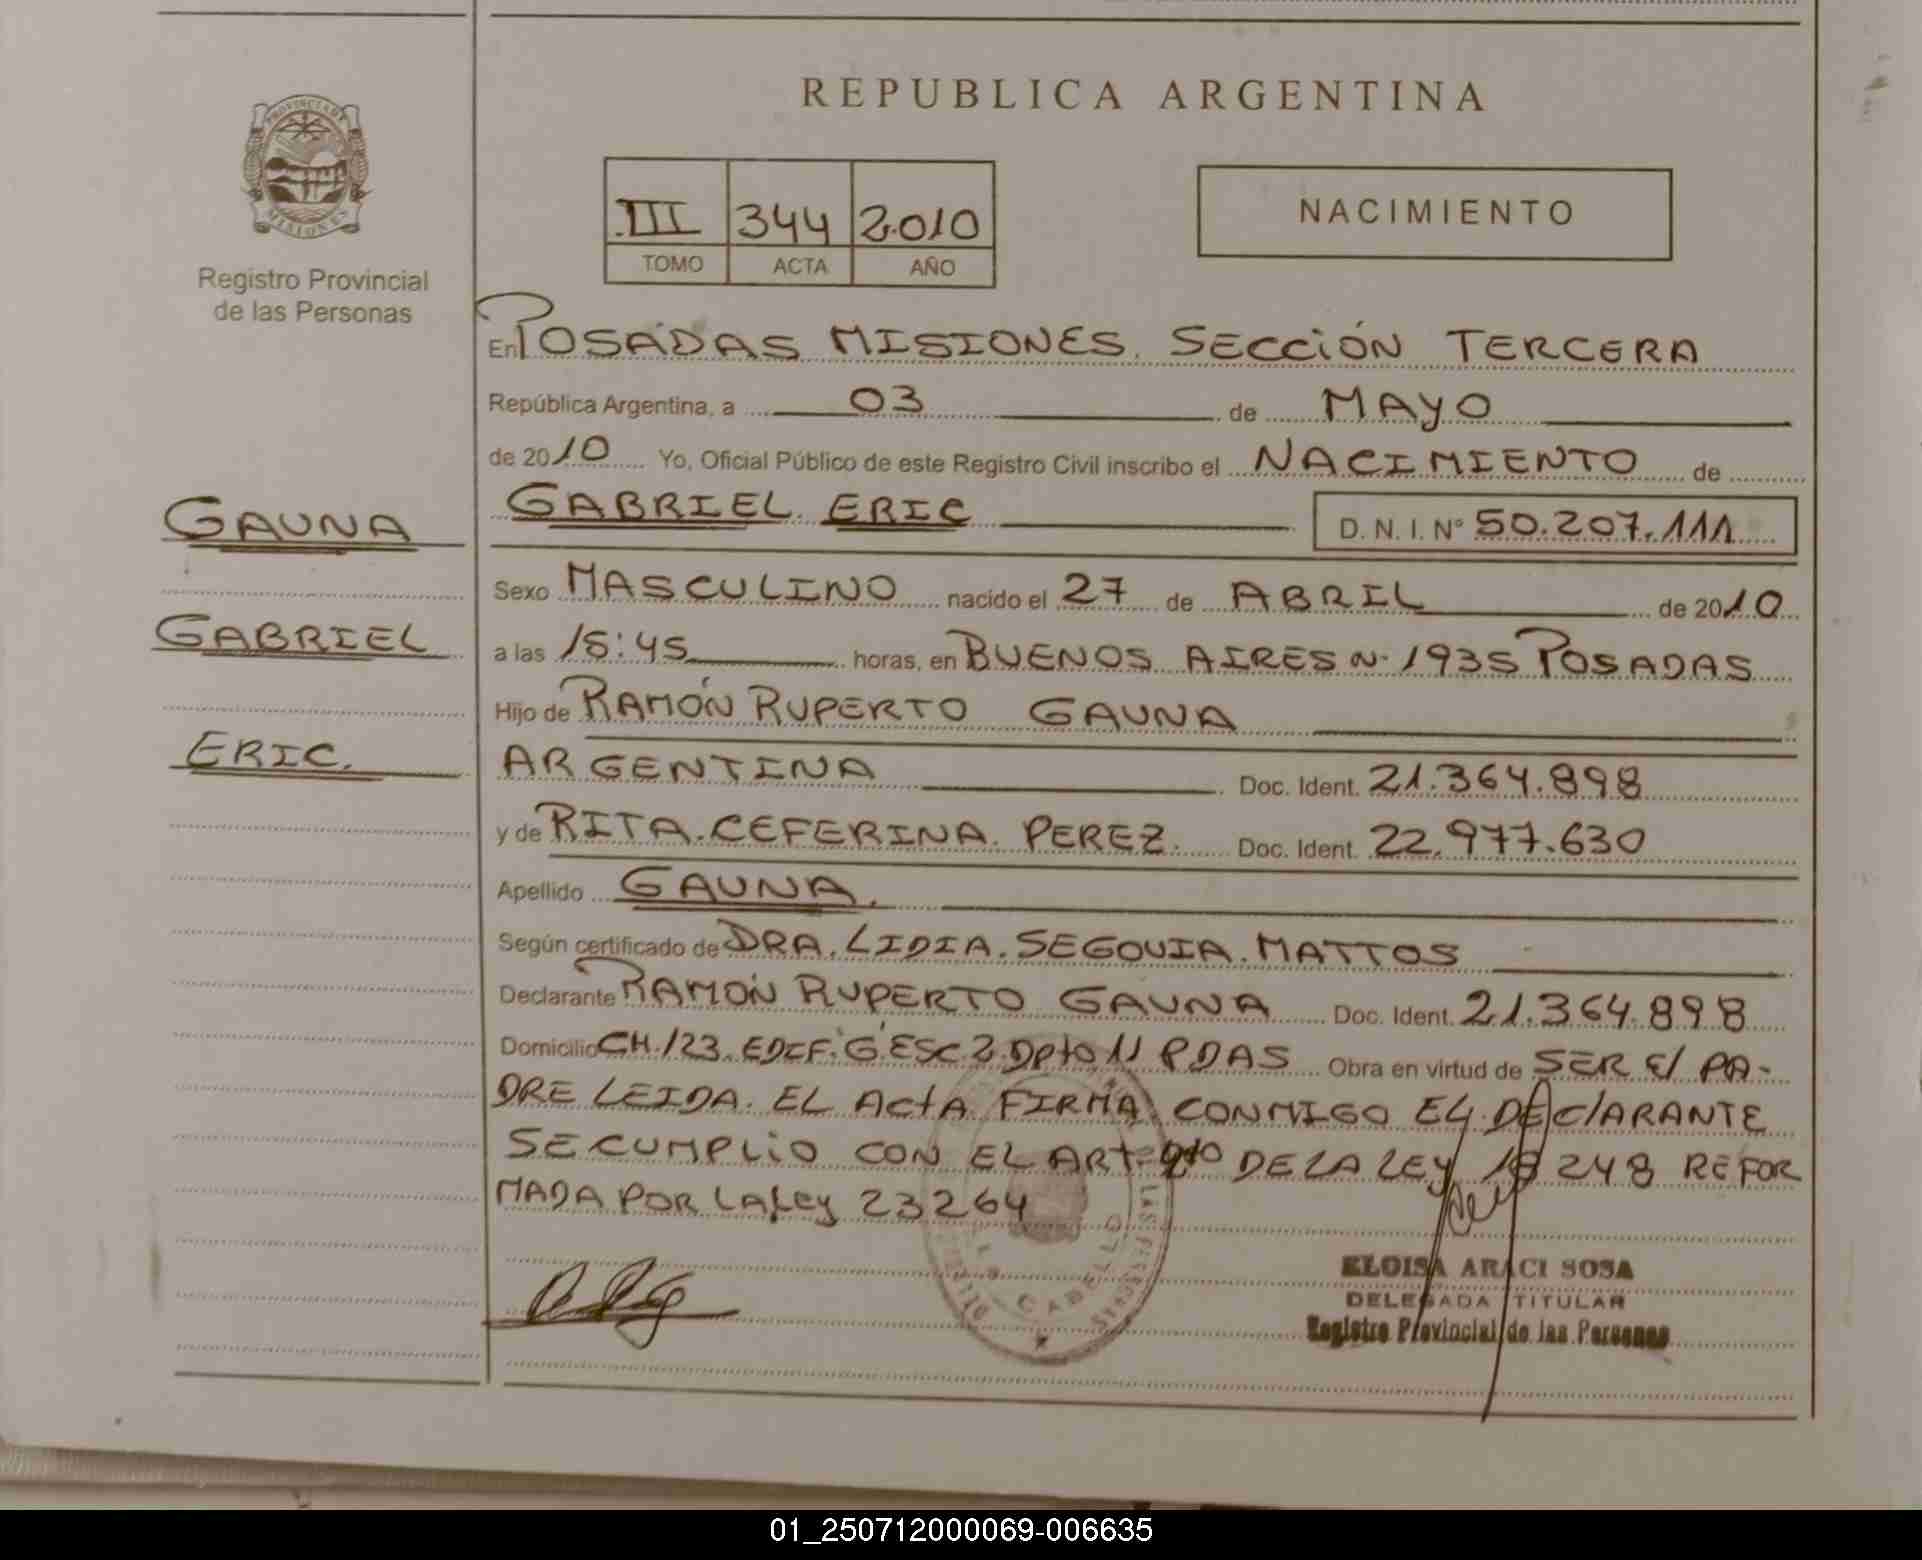 REPUBLICA ARGENTINA
PROVINCIA DE
MISIONES
Registro Provincial
de las Personas
III 344 2.010
TOMO ACTA AÑO
NACIMIENTO
En POSADAS MISIONES. SECCIÓN TERCERA
República Argentina, a 03 de MAYO
de 2010 Yo, Oficial Público de este Registro Civil inscribo el NACIMIENTO de
GAUNA
GABRIEL ERIC D. N. I. Nº 50.207.111
Sexo MASCULINO nacido el 27 de ABRIL de 2010
GABRIEL
a las 15:45 horas, en BUENOS AIRES N. 1935 POSADAS
Hijo de RAMÓN RUPERTO GAUNA
ERIC.
ARGENTINA Doc. Ident. 21.364.898
y de RITA. CEFERINA. PEREZ. Doc. Ident. 22.977.630
Apellido GAUNA.
Según certificado de DRA. LIDIA. SEGOVIA. MATTOS
Declarante RAMÓN RUPERTO GAUNA Doc. Ident. 21.364.898
Domicilio CH. 123. EDIF. G. ESC 2. Dpto 11 PDAS Obra en virtud de SER El PA-
DRE LEIDA. EL ACtA FIRMA CONMIGO EL DEClARANTE
SE CUMPLIO CON EL ART. DE LA LEY 18 248 REFOR
MADA POR LA Ley 23264
CABELLO
ELOISA ARACI SOSA
DELEGADA TITULAR
Registro Provincial de las Personas
01_250712000069-006635